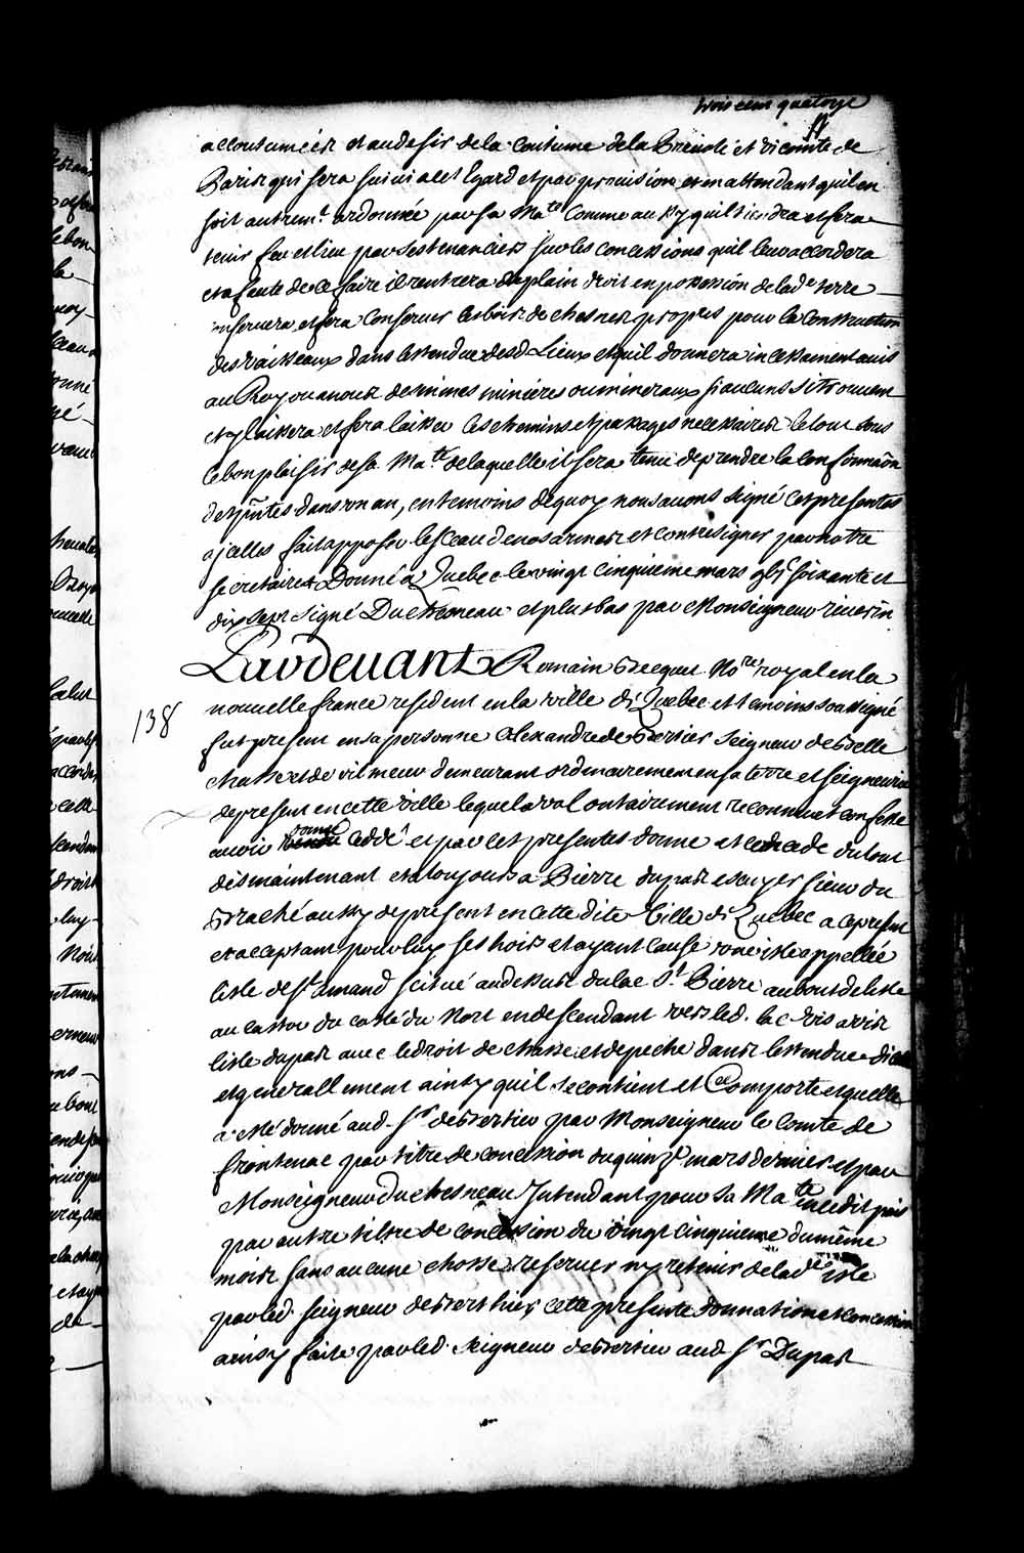 trois cent quatorze
accoutumées et au desir de la Coutume de la Prevoté et vicomté de
Paris qui sera suivi a cet Egard et par provision et en attendant quil en
soit autrem.t ordonnée par sa Ma.té Comme aussy quil tiendra et fera
tenir feu et lieu par ses tenanciers sur les concessions quil leur accordera
et a faute de ce faire il rentrera de plain droit en possession de lad.e terre
conservera et fera Conserver les bois de chesnes propres pour la Construction
des Vaisseaux dans lestendue desd Lieux et quil donnera incessament avis
au Roy ou a nous des mines minieres ou mineraux si aucuns si trouvent
et y laissera et fera laisser les chemins et passages necessaires le tout sous
le bon plaisir de sa Ma.té de laquelle il sera tenu de prendre la confirmaõn
des pñtes dans un an, en temoins de quoy nous avons signé ces presentes
a jcelles fait apposer le sceau de nos armes et contresigner par notre
secretaire Donné a Quebec le vingt cinquieme mars gbj soixante et
dix sept signé Duchesneau et plus bas par Monseigneur
Pardevant Romain Becquet No.re royal en la
138
nouvelle france resident en la ville de Quebec et temoins soussigné
fut present en sa personne Alexandre de Bertier Seigneur de Belle
chasse et de vilmeur demeurant ordinairement en sa terre et seigneurie
de present en cette Ville lequel a volontairement reconnu et confesse
donné
avoir vendu Cedde et par ces presentes donne et cedde du tout
des maintenant et a toujours a Pierre dupas escuyer sieur du
Braché aussy de present en cette dite Ville de Quebec a ce present
et acceptant pour luy ses hoirs et ayant cause une isle appellée
lisle de S.t amand scitué au dessus du lac S.t Pierre au bout de lisle
au castor du costé du Nort en descendant vers led. lac vis a vis
lisle dupas avec le droit de chasse et de peche dans lestendue dicelle
et generallement ainsy quil se contient et Comporte et quelle
a esté donné aud. S.r de Bertier par Monseigneur le Comte de
frontenac par titre de concession du quinz.e mars dernier et par
Monseigneur Duchesneau Intendant pour Sa Ma.té
par autre tiltre de concession du vingt cinquieme du même
mois sans aucune chosse reserver ny retenir de lad.e isle
par led. seigneur de Berthier cette presente donnation et concession
ainsy faite par led. Seigneur de Bertier aud S.r Dupas